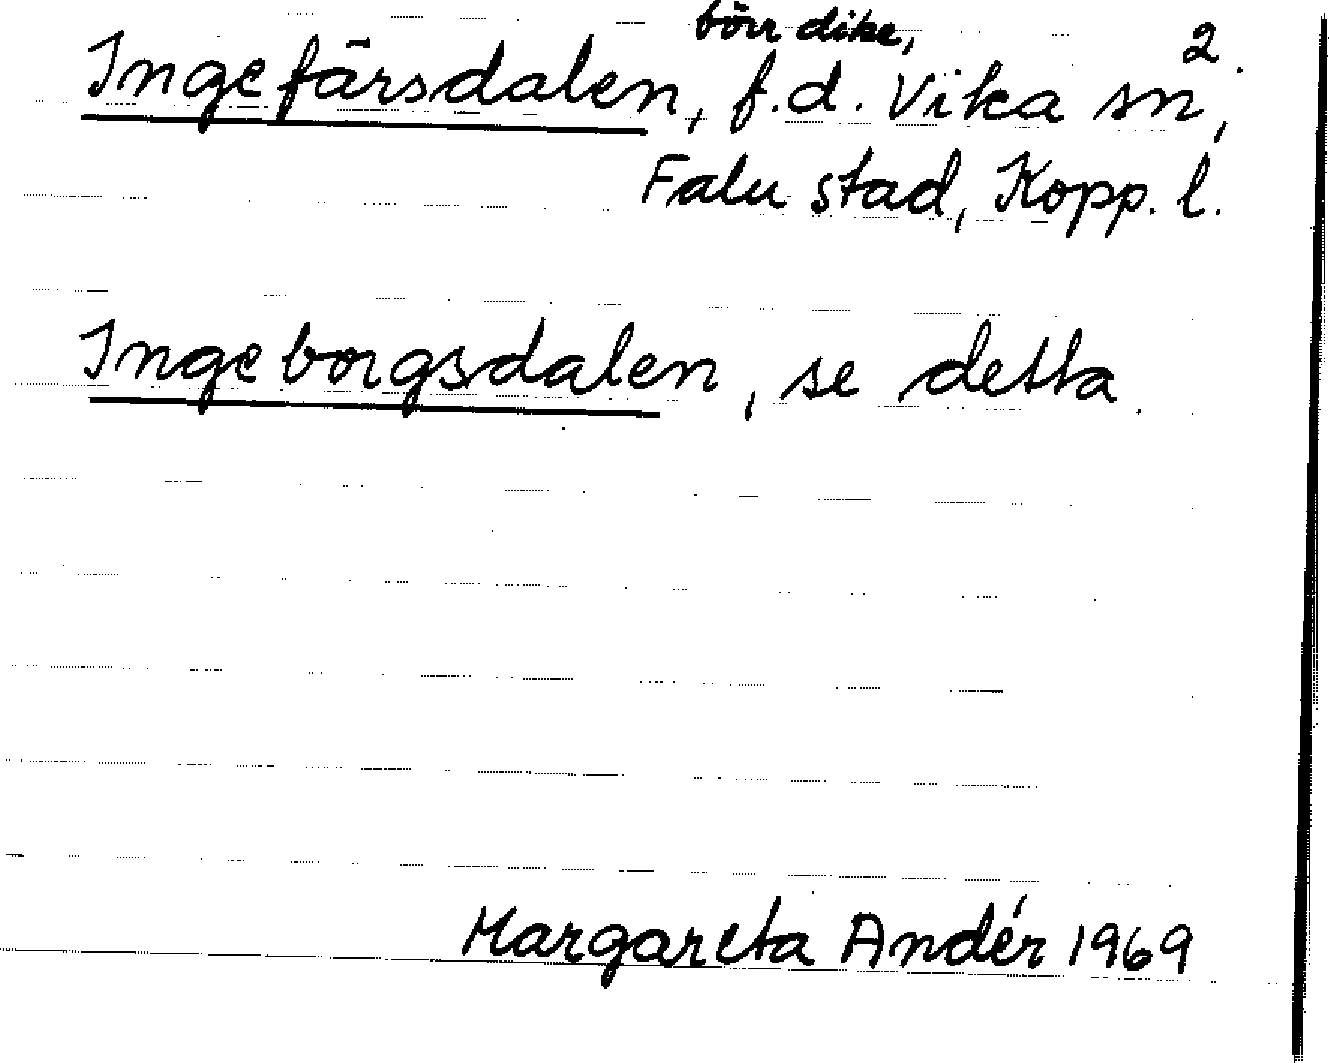 törr dike, 2.
Ingefärsdalen, f.d. Vika sn,
Falu stad, Kopp. l.
Ingeborgsdalen, se detta.
Margareta Andér 1969